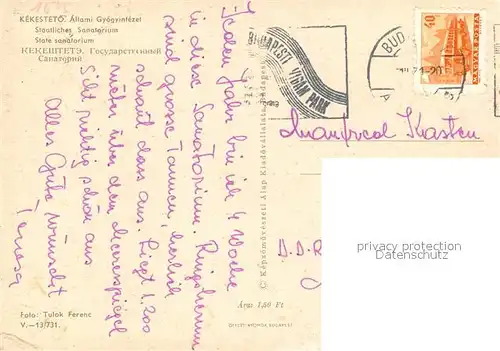 KÉKESTETŐ. Állami Gyógyintézet
Staatliches Sanatorium
State sanatorium
КЕКЕШТЕТЭ. Государственный
Санаторий
Jeden Jahr bin ich 4 Woche
in diese Sanatorium. Ringsherum
sind grosse Tannen, herrlich
schaut dass aus. Liegt 1.200
meter über dem Meeresspiegel
Sieht richtig schön aus
Alles Gute wünscht
Foto: Tulok Ferenc
V.—13/731.
BUDAPESTI VIDÁM PARK
BUD
40
MAGYAR POSTA
Manfred Kasten
D.D.R
© Képzőművészeti Alap Kiadóvállalata, Budapest
Ára: 1,50 Ft
privacy protection
Datenschutz